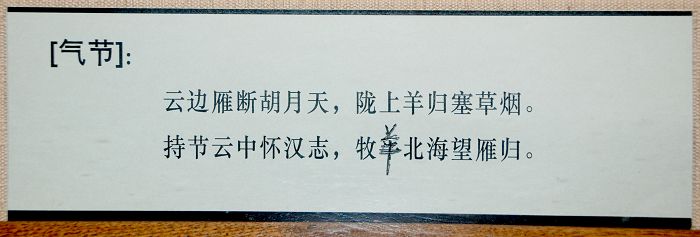 [气节]：
云边雁断胡月天，陇上羊归塞草烟。
持节云中怀汉志，牧羊北海望雁归。